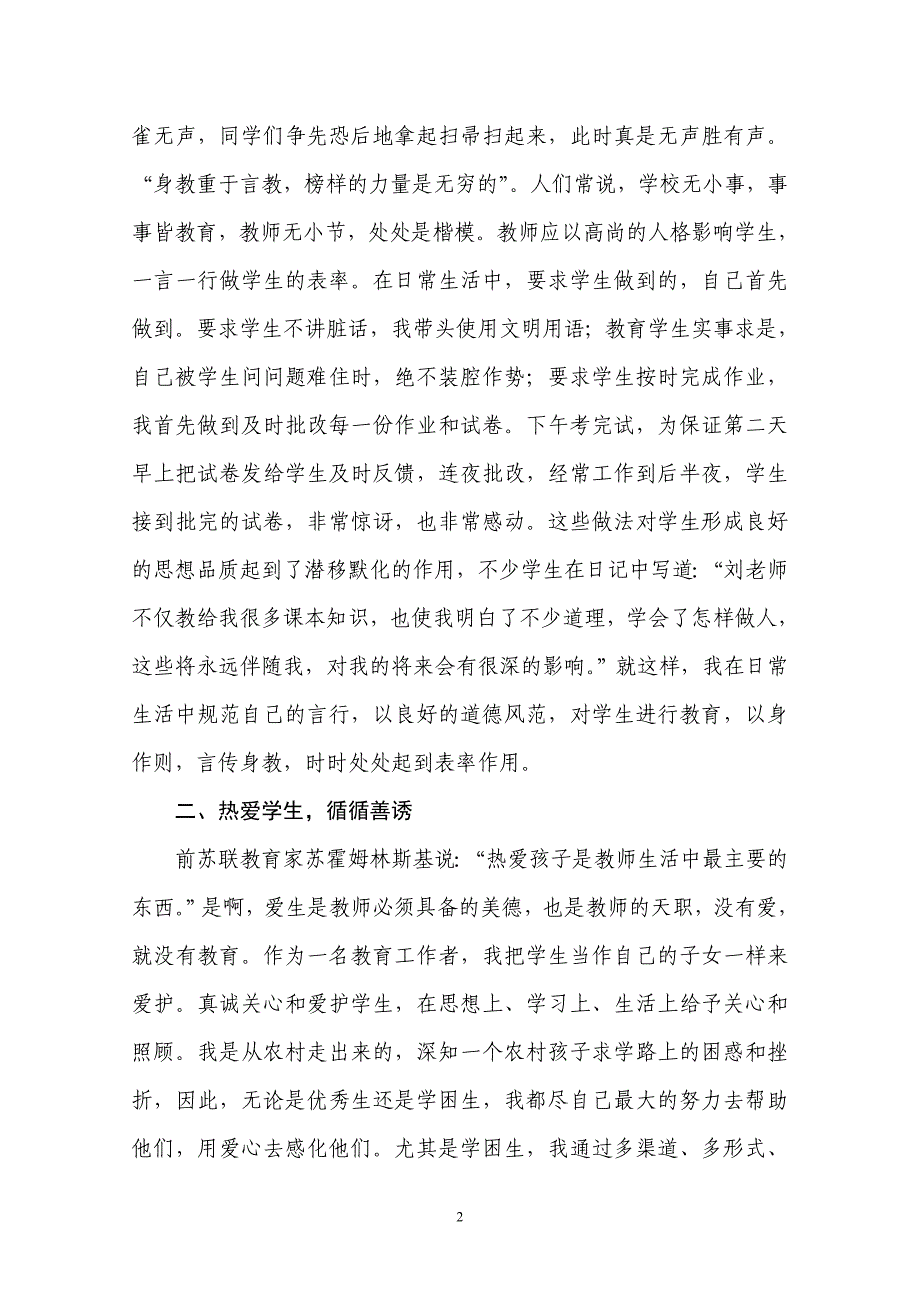 雀无声，同学们争先恐后地拿起扫帚扫起来，此时真是无声胜有声。
“身教重于言教，榜样的力量是无穷的”。人们常说，学校无小事，事
事皆教育，教师无小节，处处是楷模。教师应以高尚的人格影响学生，
一言一行做学生的表率。在日常生活中，要求学生做到的，自己首先
做到。要求学生不讲脏话，我带头使用文明用语；教育学生实事求是，
自己被学生问问题难住时，绝不装腔作势；要求学生按时完成作业，
我首先做到及时批改每一份作业和试卷。下午考完试，为保证第二天
早上把试卷发给学生及时反馈，连夜批改，经常工作到后半夜，学生
接到批完的试卷，非常惊讶，也非常感动。这些做法对学生形成良好
的思想品质起到了潜移默化的作用，不少学生在日记中写道：“刘老师
不仅教给我很多课本知识，也使我明白了不少道理，学会了怎样做人，
这些将永远伴随我，对我的将来会有很深的影响。”就这样，我在日常
生活中规范自己的言行，以良好的道德风范，对学生进行教育，以身
作则，言传身教，时时处处起到表率作用。
二、热爱学生，循循善诱
前苏联教育家苏霍姆林斯基说：“热爱孩子是教师生活中最主要的
东西。”是啊，爱生是教师必须具备的美德，也是教师的天职，没有爱，
就没有教育。作为一名教育工作者，我把学生当作自己的子女一样来
爱护。真诚关心和爱护学生，在思想上、学习上、生活上给予关心和
照顾。我是从农村走出来的，深知一个农村孩子求学路上的困惑和挫
折，因此，无论是优秀生还是学困生，我都尽自己最大的努力去帮助
他们，用爱心去感化他们。尤其是学困生，我通过多渠道、多形式、
2